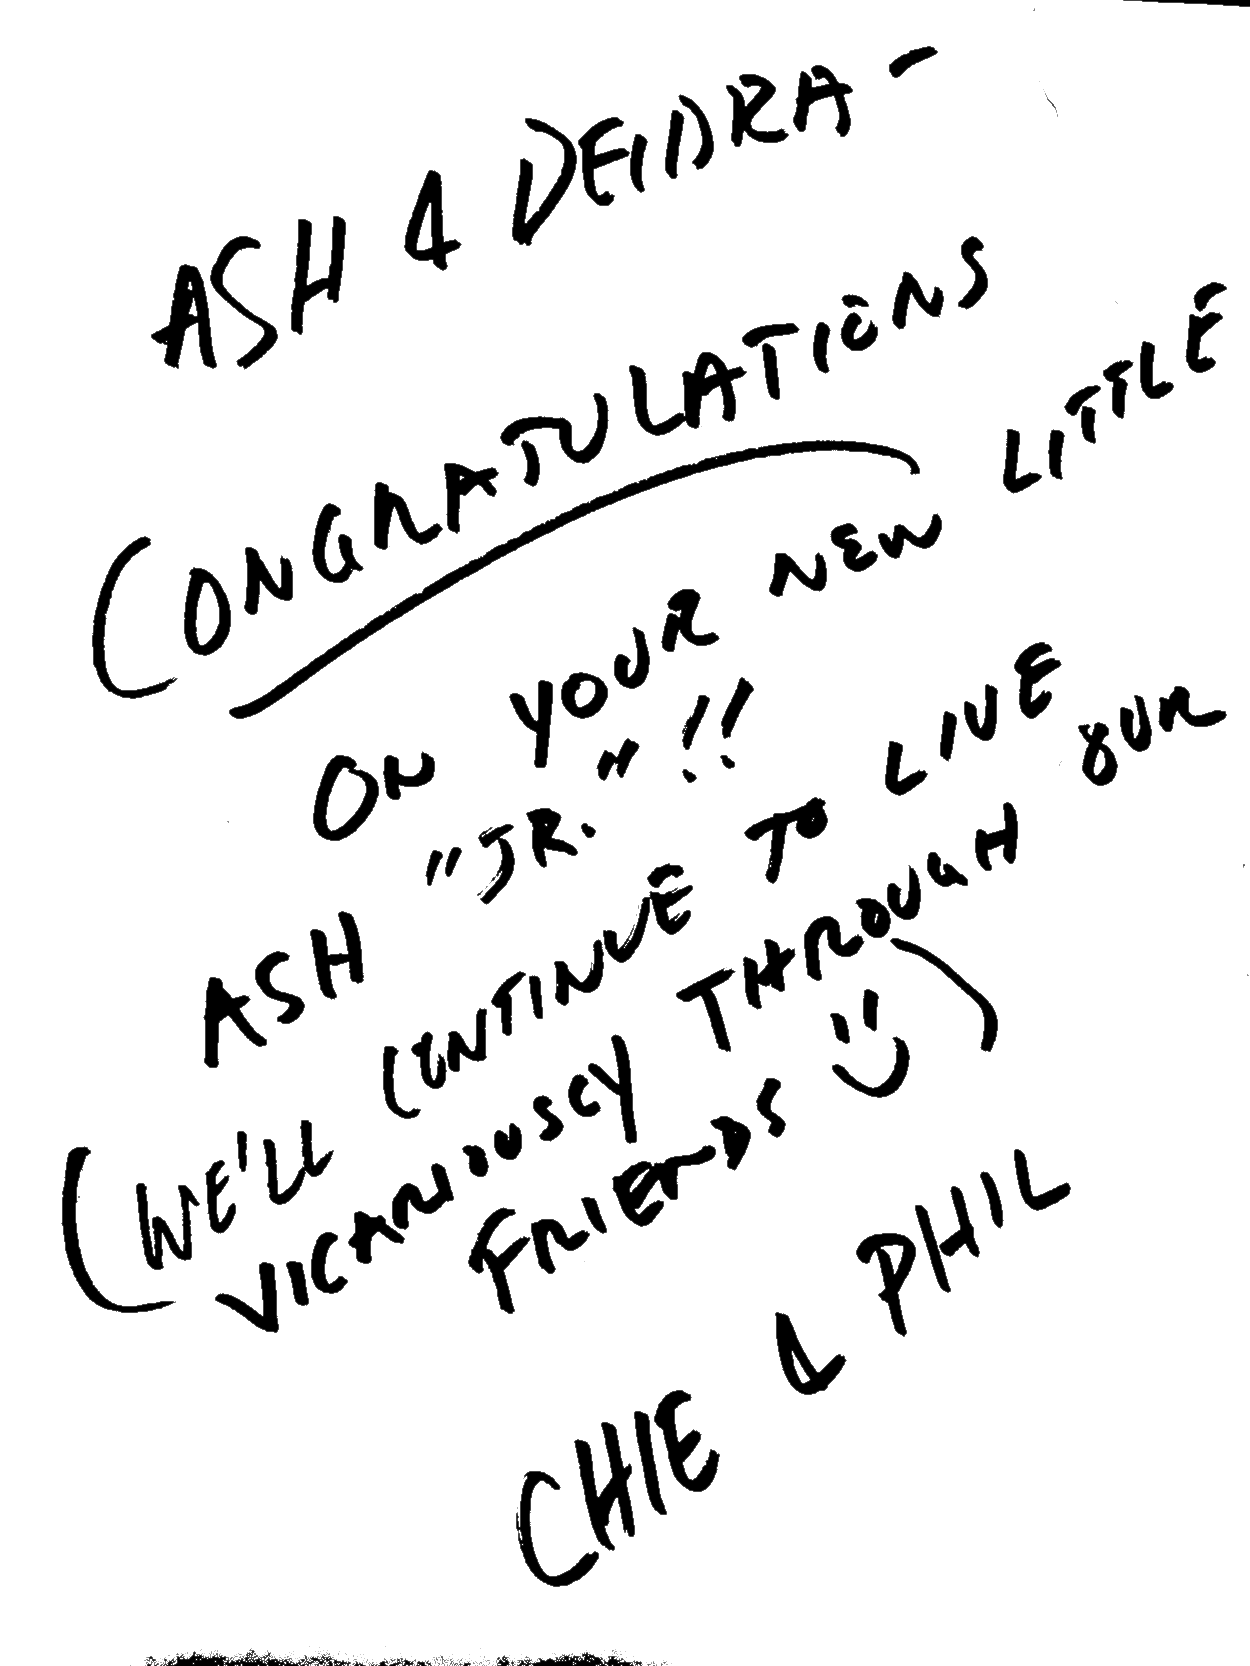 ASH & DEIDRA -
CONGRATULATIONS
ON YOUR NEW LITTLE
ASH "JR."!!
(WE'LL CONTINUE TO LIVE
VICARIOUSLY THROUGH OUR
FRIENDS :)
CHIE & PHIL